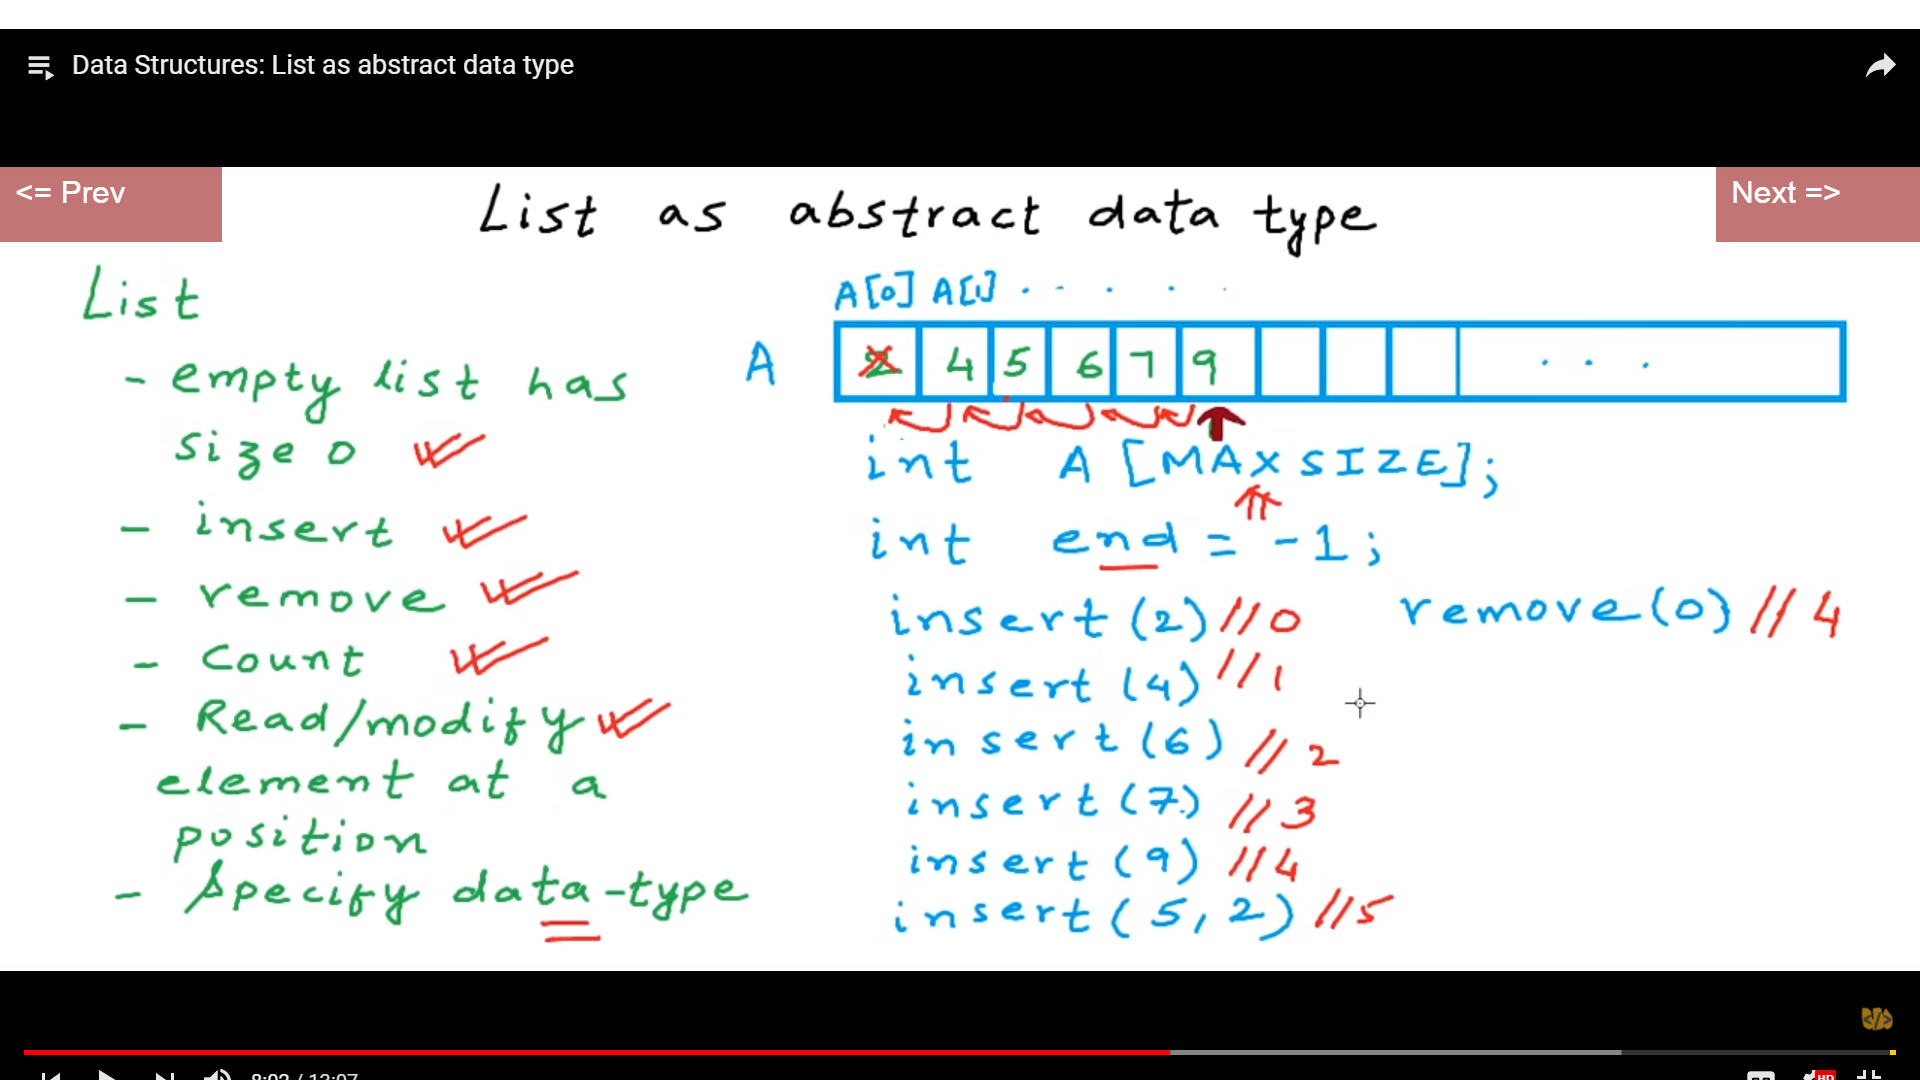 Data Structures: List as abstract data type
<= Prev
Next =>
List as abstract data type
List
- empty list has
size 0
- insert
- remove
- Count
- Read/modify
element at a
position
- Specify data-type
A[0] A[1] . . . . .
A
2 4 5 6 7 9 . . .
int A [MAXSIZE];
int end = -1;
insert (2) //0
remove(0) // 4
insert (4) //1
insert (6) //2
insert (7) //3
insert (9) //4
insert (5, 2) //5
8:02 / 13:07
HD